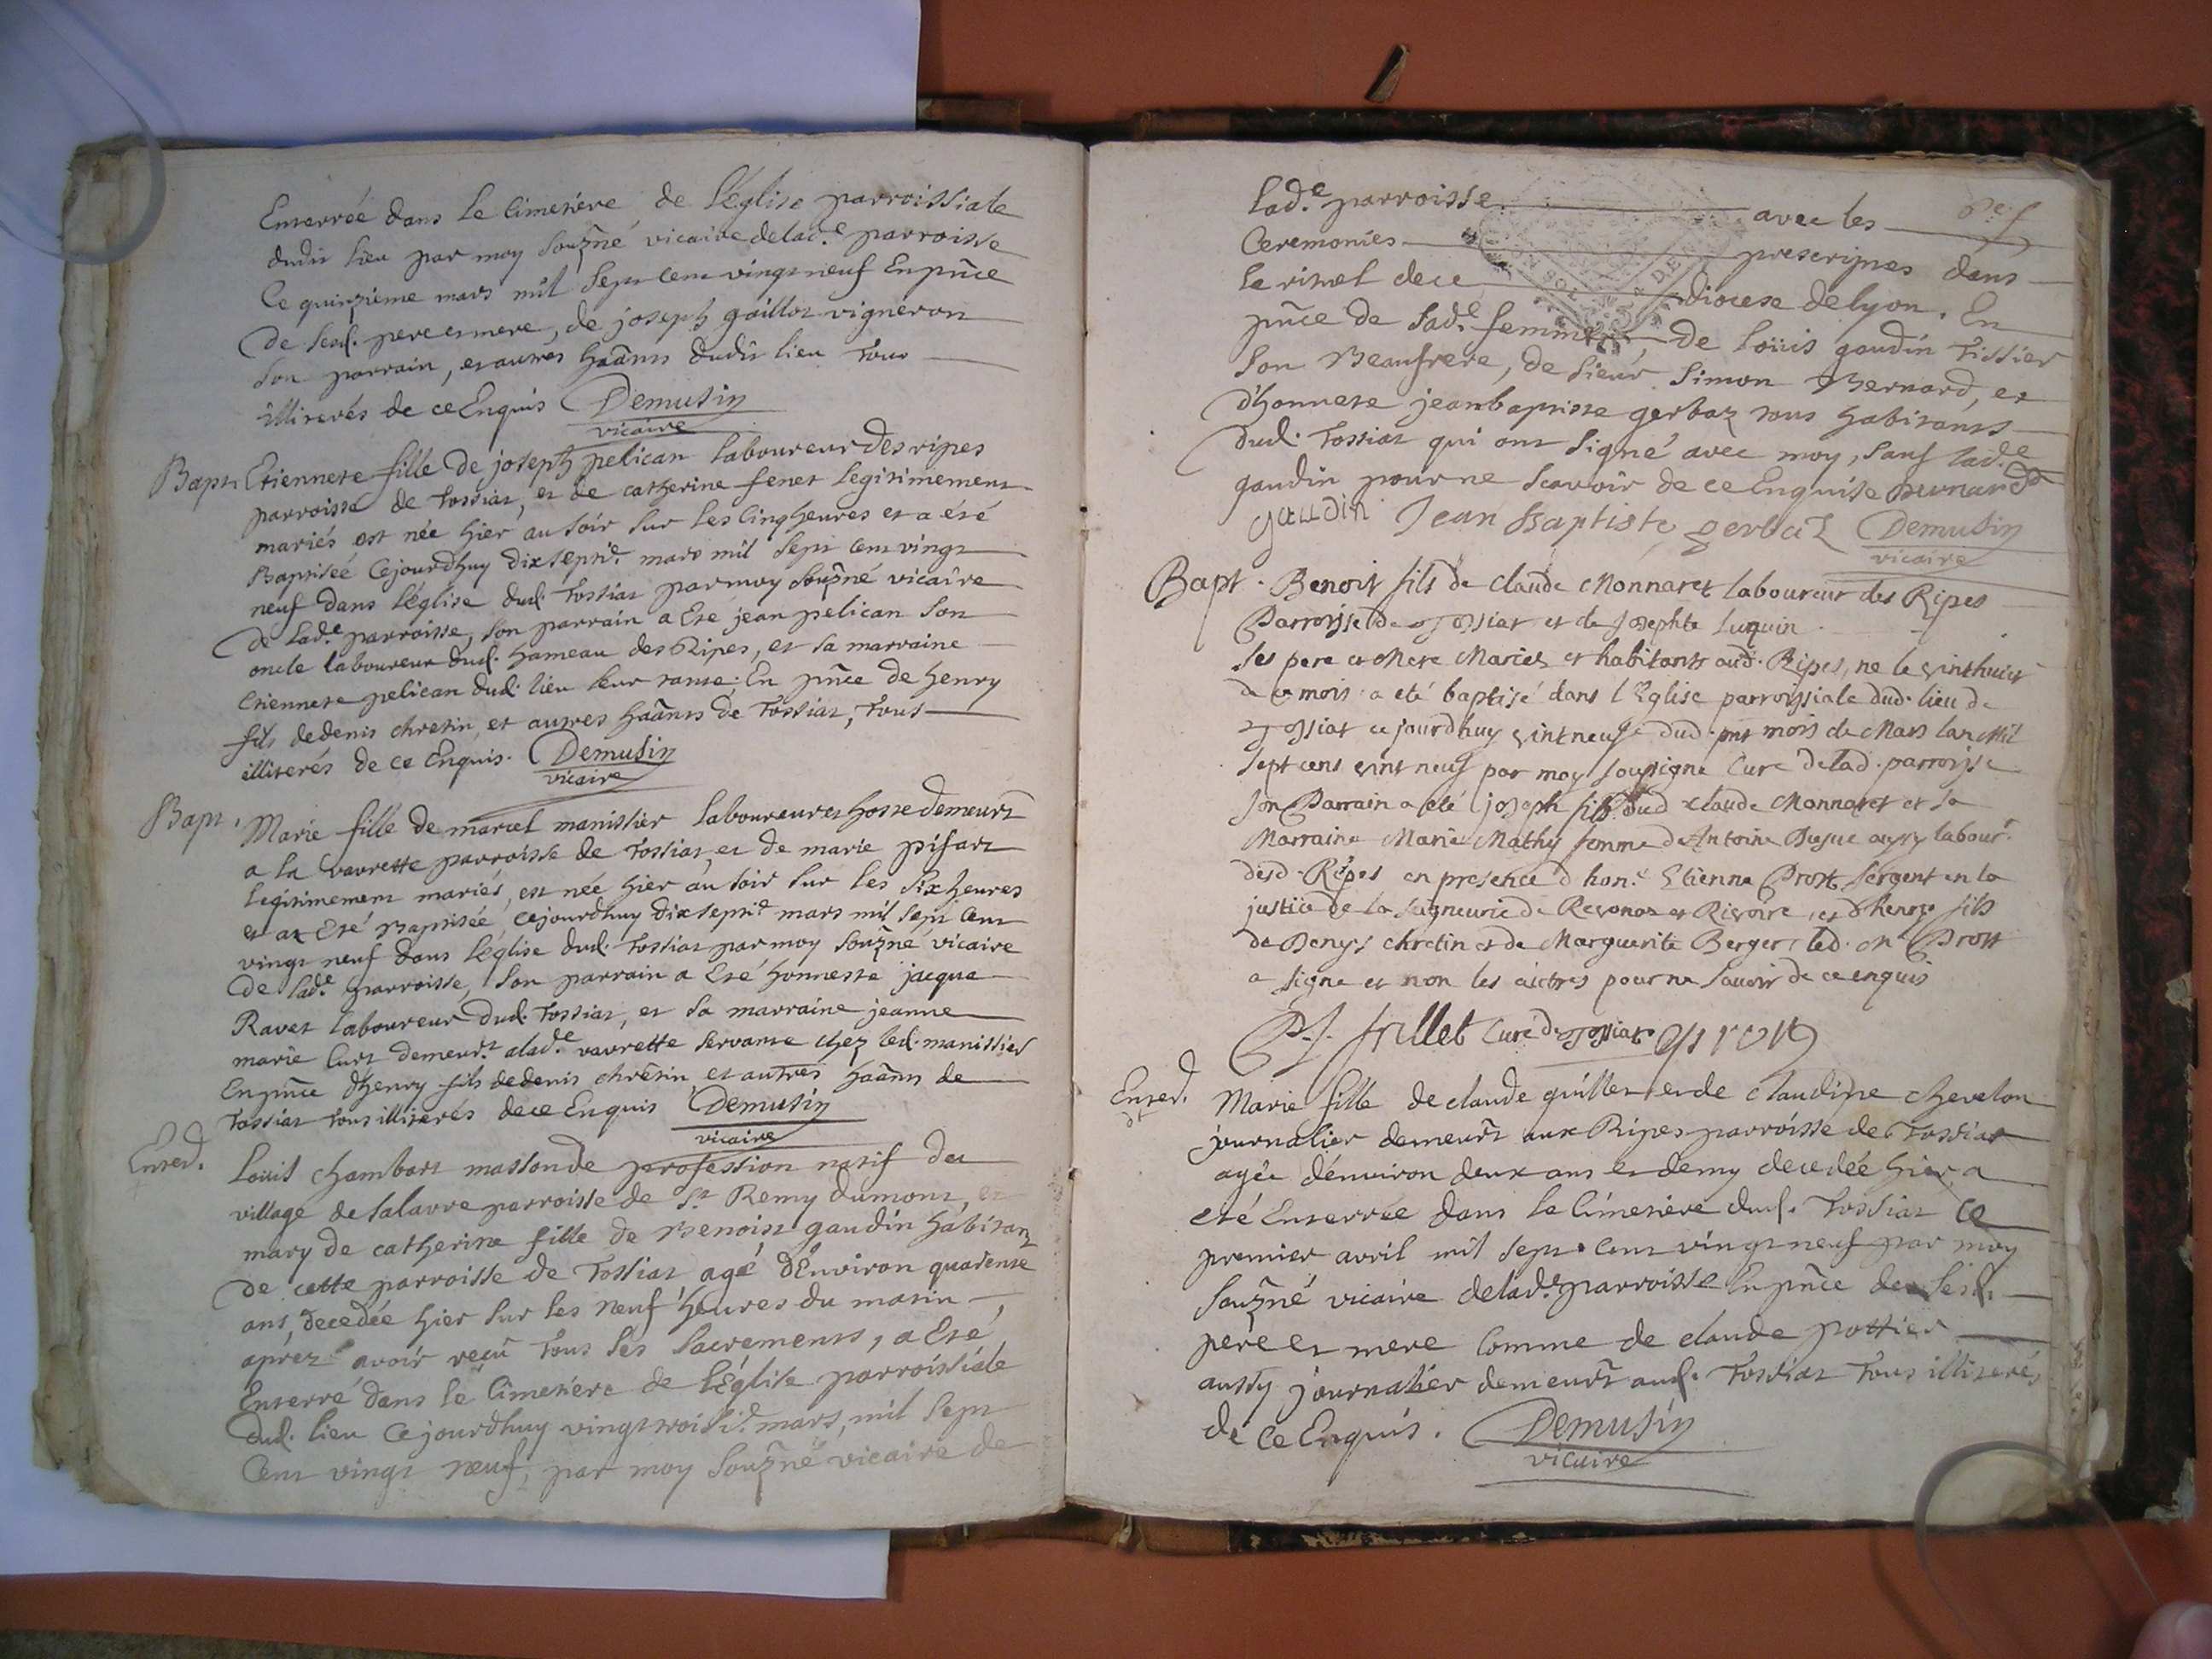 Enterrée dans le Cimetière de l'église parroissiale
dudit lieu par moy souz̃né vicaire de lad.e parroisse
Ce quinzieme mars mil sept cent vingt neuf En pñce
de sesd. pere et mere, de joseph gaillot vigneron
son parrain, et autres haãnts dudit lieu tous
illiterés de ce Enquis Demusin
vicaire
Bapt. Etiennete fille de joseph pelican laboureur des ripes
parroisse de tossiat, et de catherine fenet legitimement
mariés est née hier au soir sur les cinq heures et a été
Baptisée Cejourdhuy dix septie. mars mil sept cent vingt
neuf dans l'église dud. tossiat par moy souz̃né vicaire
de lad.e parroisse, son parrain a Eté jean pelican son
oncle laboureur dud. hameau des Ripes, et sa marraine
Etiennete pelican dud. lieu leur tante. En pñce de henry
fils de denis chretin, et autres haãnts de Tossiat, tous
illiterés de ce Enquis. Demusin
vicaire
Bapt. Marie fille de marcel manissier laboureur et hosse demeurt
a la vavrette parroisse de tossiat, et de marie pisart
legitimement mariés, est née hier au soir sur les six heures
et a Eté Baptisée, cejourdhuy dix septie. mars mil sept cent
vingt neuf dans l'église dud. tossiat par moy souz̃né vicaire
de lad.e parroisse, son parrain a Eté honneste jacque
Ravet laboureur dud. tossiat, et sa marraine jeanne
marie curt demeurt. a lad.e vavrette servante chez led. manissier
En pñce d'henry fils de denis chretin et autres haãnts de
tossiat tous illiterés de ce Enquis Demusin
vicaire
Enterd. Louis chambart masson de profession natif du
village de salavre parroisse de St Remy dumont, et
mary de catherine fille de Benoist gaudin habitant
de cette parroisse de Tossiat agé d'Environ quarente
ans, decedée hier sur les neuf heures du matin,
aprez avoir reçû tous ses sacrements, a Eté
Enterré dans le Cimetiere de l'Église parroissiale
dud. lieu Cejourdhuy vingt troisie. mars, mil sept
Cent vingt neuf, par moy souz̃né vicaire de
lad.e parroisse avec les
Ceremonies prescriptes dans
le rituel de ce diocese de lyon. En
pñce de sad.e femme, de Loüis gaudin Tissier
son Beaufrere, de sieur Simon Bernard, et
d'honnete jeanbaptiste gerbaz tous habitants
dud. Tossiat qui ont signé avec moy, sauf lad.e
gaudin pour ne scavoir de ce Enquise Bernard
gaudin Jean Baptiste gerbaz Demusin
vicaire
Bapt. Benoit fils de Claude Monnaret laboureur des Ripes
Parroisse de Tossiat et de Josephte Luquin
ses pere et Mere Mariez et habitants aud. Ripes, ne le vinthuit
de ce mois a eté baptisé dans l'Eglise parroissiale dud. lieu de
Tossiat ce jourdhuy vintneufe dud. pnt mois de Mars lan Mil
sept cens vint neuf par moy soussigne Curé de lad. parroisse
son Parrain a eté joseph fils dud Claude Monnaret et sa
Marraine Marie Mathy femme d'Antoine aussy labourr.
desd. Ripes en presence d'hon.e Etienne Prost sergent en la
justice de la seigneurie de Revonas et Rivoire, et d'henry fils
de Denys chretin et de Marguerite Berger, led. Mr Prost
a signe et non les autres pour ne savoir de ce enquis
P. J. frillet Curé de Tossiat. prost
Enterd. Marie fille de claude guillet et de claudine chevelon
journalier demeurt aux Ripes parroisse de Tossiat
agée d'environ deux ans et demy decedée hier, a
eté Enterrée dans le Cimetière dud. Tossiat ce
premier avril mil sept cent vingt neuf par moy
souz̃né vicaire de lad.e parroisse En pñce de sesd.
pere et mere comme de claude pottier
aussy journalier demeurt aud. Tossiat tous illiterés
de ce Enquis. Demusin
vicaire